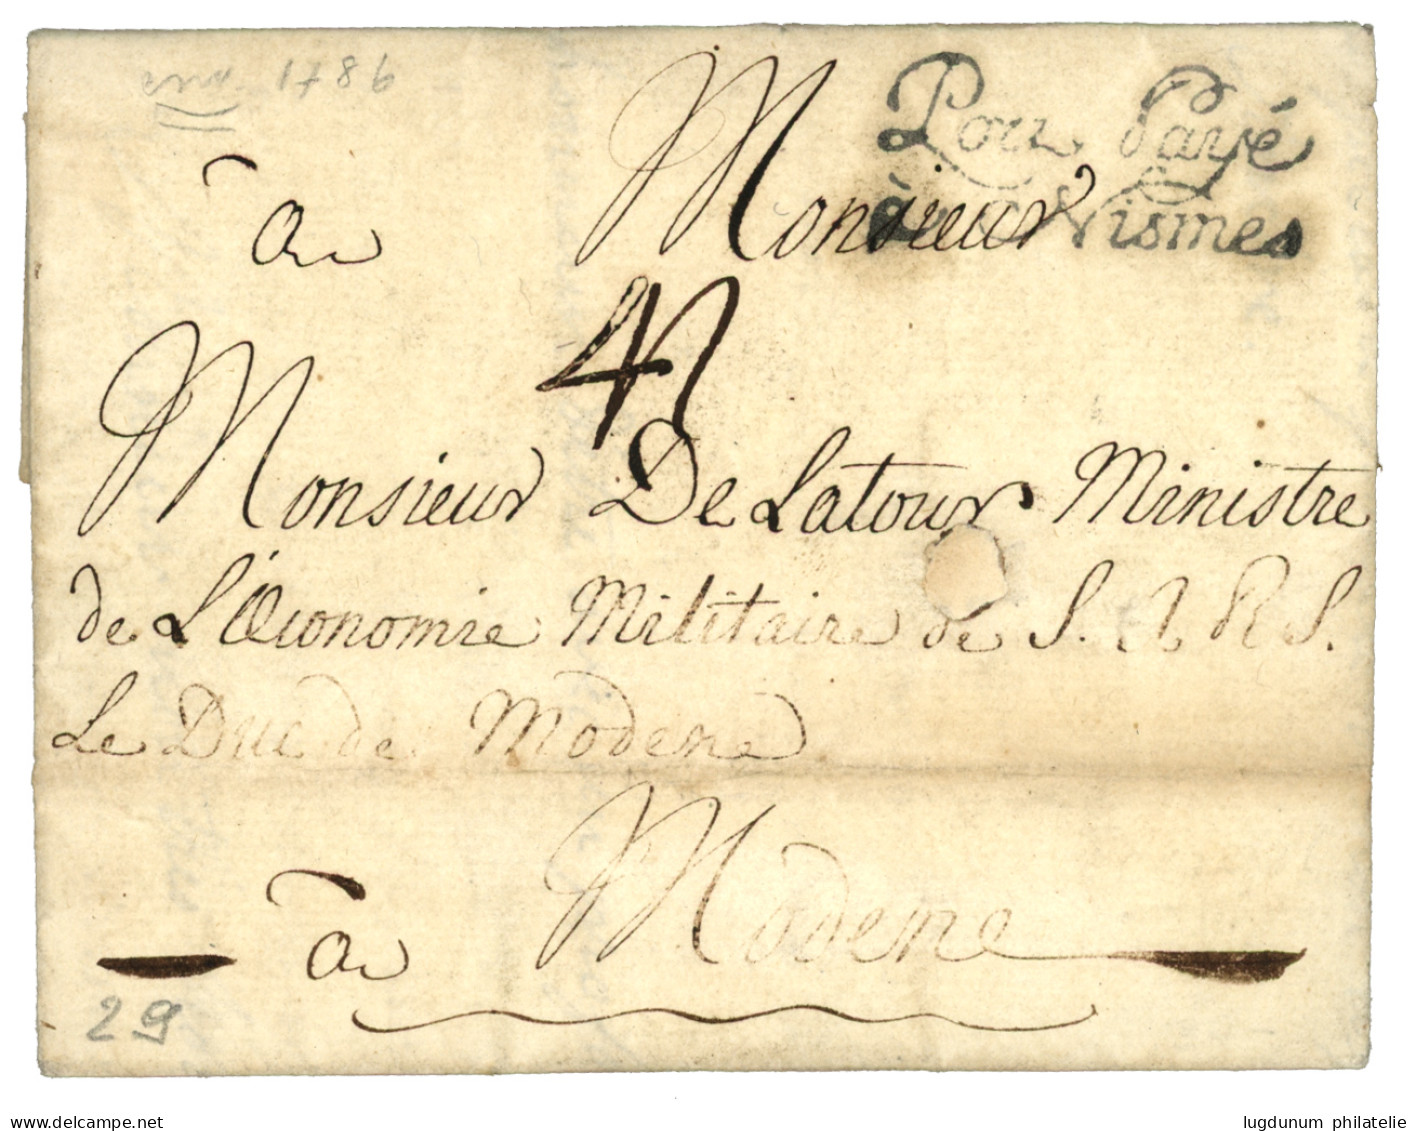 1786
Port Payé
à Nismes
a Monsieur
4
Monsieur De Latour Ministre
de L'Œconomie Militaire de S. A. R. S.
Le Duc de Modene
a Modene
29
www.delcampe.net
lugdunum philatelie